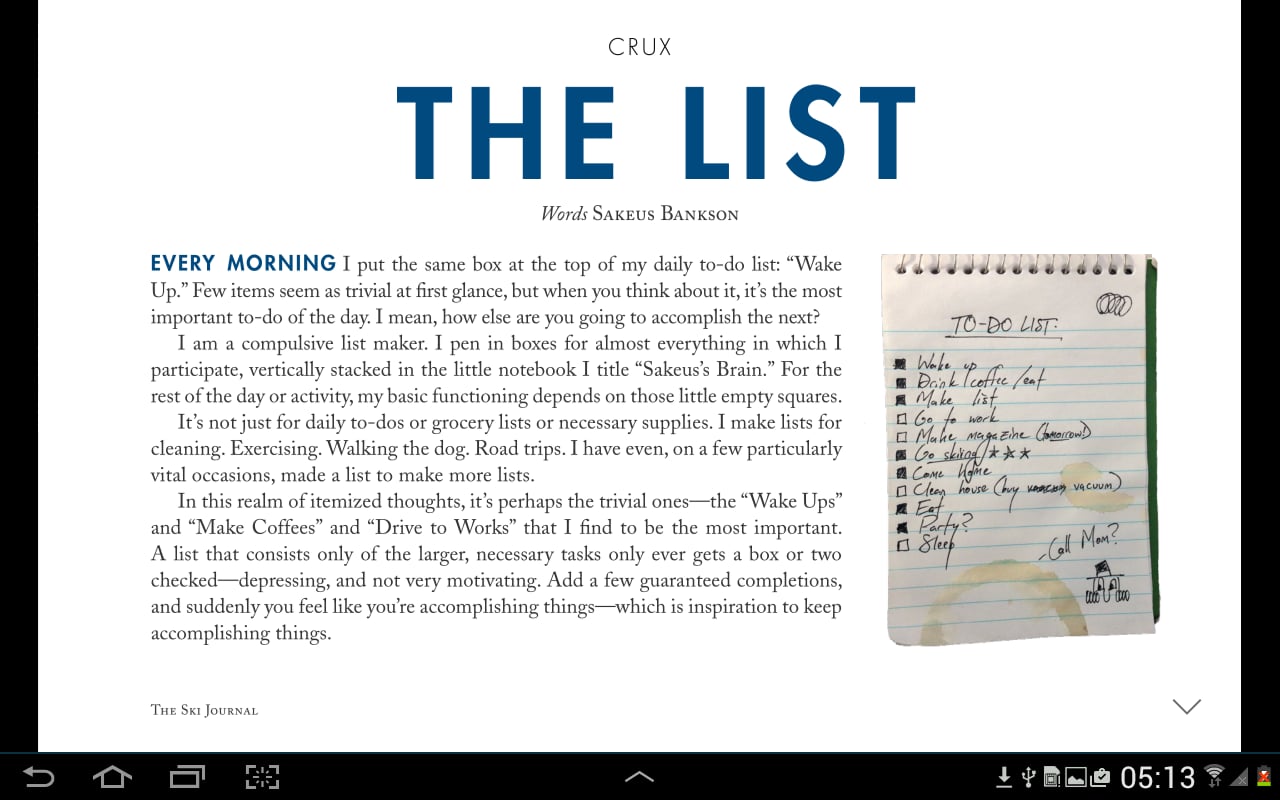 CRUX
THE LIST
Words Sakeus Bankson
EVERY MORNING I put the same box at the top of my daily to-do list: “Wake
Up.” Few items seem as trivial at first glance, but when you think about it, it’s the most
important to-do of the day. I mean, how else are you going to accomplish the next?
I am a compulsive list maker. I pen in boxes for almost everything in which I
participate, vertically stacked in the little notebook I title “Sakeus’s Brain.” For the
rest of the day or activity, my basic functioning depends on those little empty squares.
It’s not just for daily to-dos or grocery lists or necessary supplies. I make lists for
cleaning. Exercising. Walking the dog. Road trips. I have even, on a few particularly
vital occasions, made a list to make more lists.
In this realm of itemized thoughts, it’s perhaps the trivial ones—the “Wake Ups”
and “Make Coffees” and “Drive to Works” that I find to be the most important.
A list that consists only of the larger, necessary tasks only ever gets a box or two
checked—depressing, and not very motivating. Add a few guaranteed completions,
and suddenly you feel like you’re accomplishing things—which is inspiration to keep
accomplishing things.
TO-DO LIST:
Wake up
Drink coffee/eat
Make list
Go to work
Make magazine (tomorrow!)
Go skiing!
Come Home
Clean house (buy vacuum)
Eat
Party?
Sleep
Call Mom?
The Ski Journal
05:13